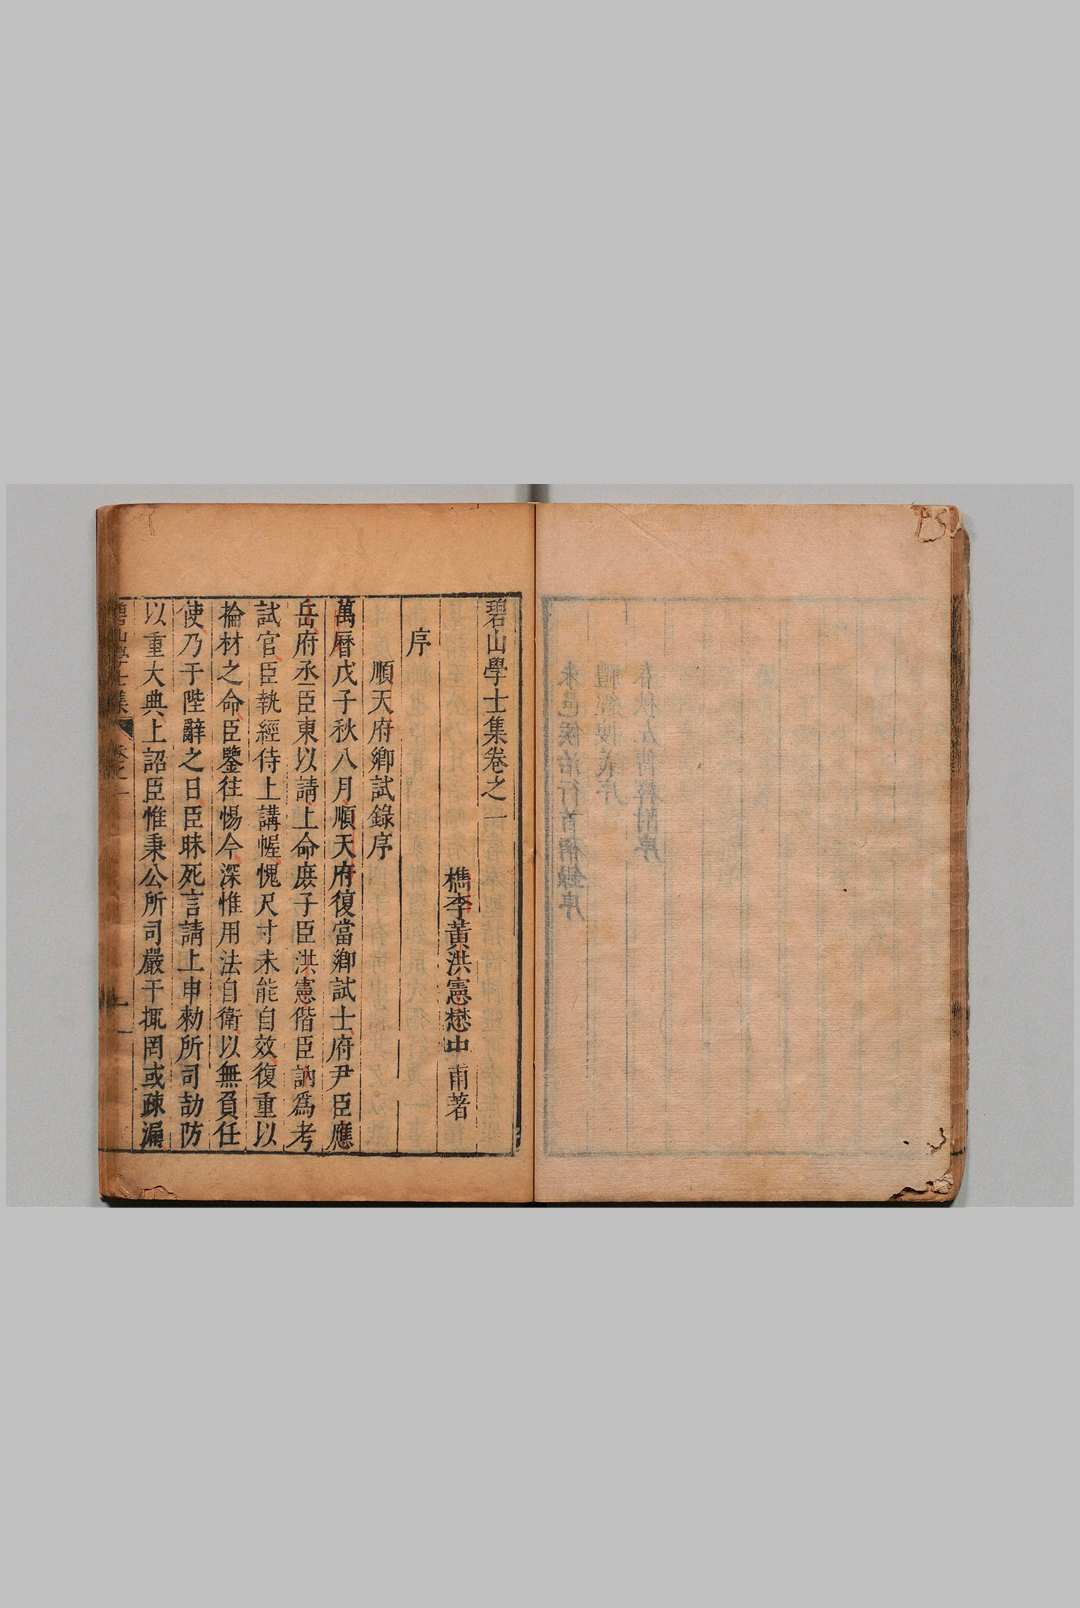 碧山學士集卷之一
檇李黃洪憲懋中甫著
序
順天府鄉試錄序
萬曆戊子秋八月順天府復當鄉試士府尹臣應
岳府丞臣東以請上命庶子臣洪憲偕臣訥爲考
試官臣執經侍上講幄愧尺寸未能自效復重以
掄材之命臣鑒往惕今深惟用法自衛以無負任
使乃于陛辭之日臣昧死言請上申勑所司劼防
以重大典上詔臣惟秉公所司嚴干掫罔或疎漏
碧山學士集 卷之一 一